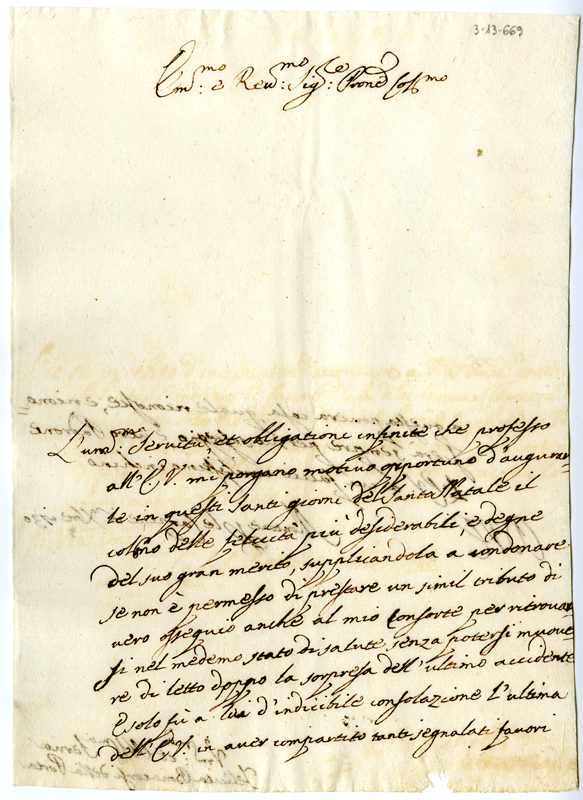 3-13-669
Em.mo e Rev.mo Sig.re Prone Col.mo
L'um.ma Servitù, et obligationi infinite che professo
all'E.V. mi porgano motivo opportuno d'augurar-
le in questi santi giorni del Santo Natale il
colmo delle felicità più desiderabili, e degne
del suo gran merito, supplicandola a condonare
se non è permesso di prestare un simil tributo di
vero ossequio anche al mio Consorte per ritrovar
si nel medemo stato di salute senza potersi muove-
re di letto doppo la sorpresa dell'ultimo accidente
E solo fù a lui d'indicibile consolazione l'ultima
dell'E.V. in aver compartito tanti segnalati favori